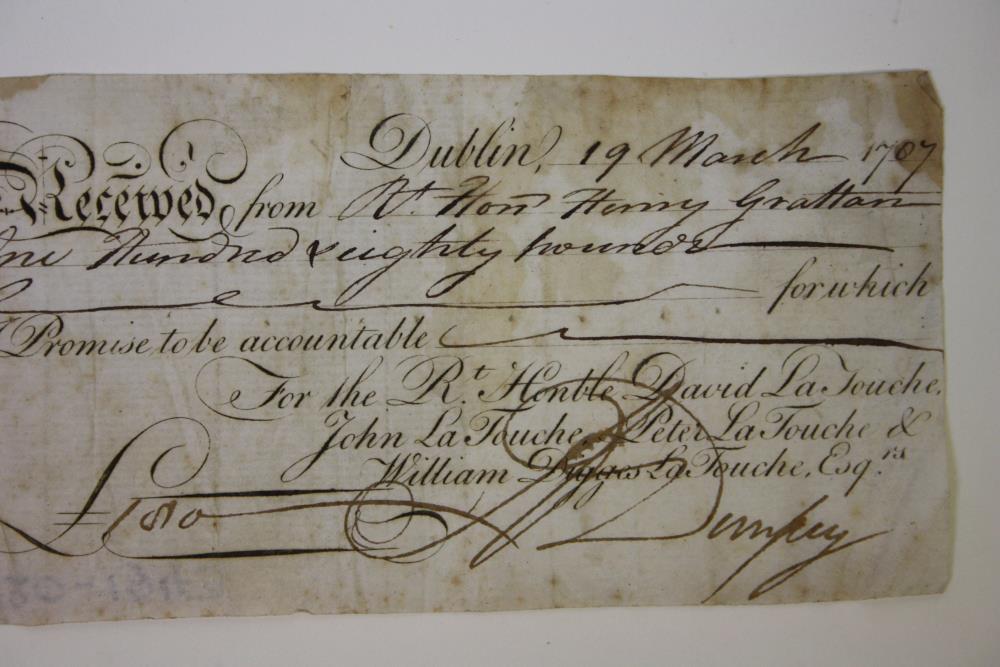 Dublin, 19 March 1787
Received from Rt. Honn Henry Grattan
One Hundred & eighty pounds
for which
Promise to be accountable
For the Rt. Honble David La Touche,
John La Touche, Peter La Touche &
William Digges La Touche, Esqrs.
£ 180
Dempsey